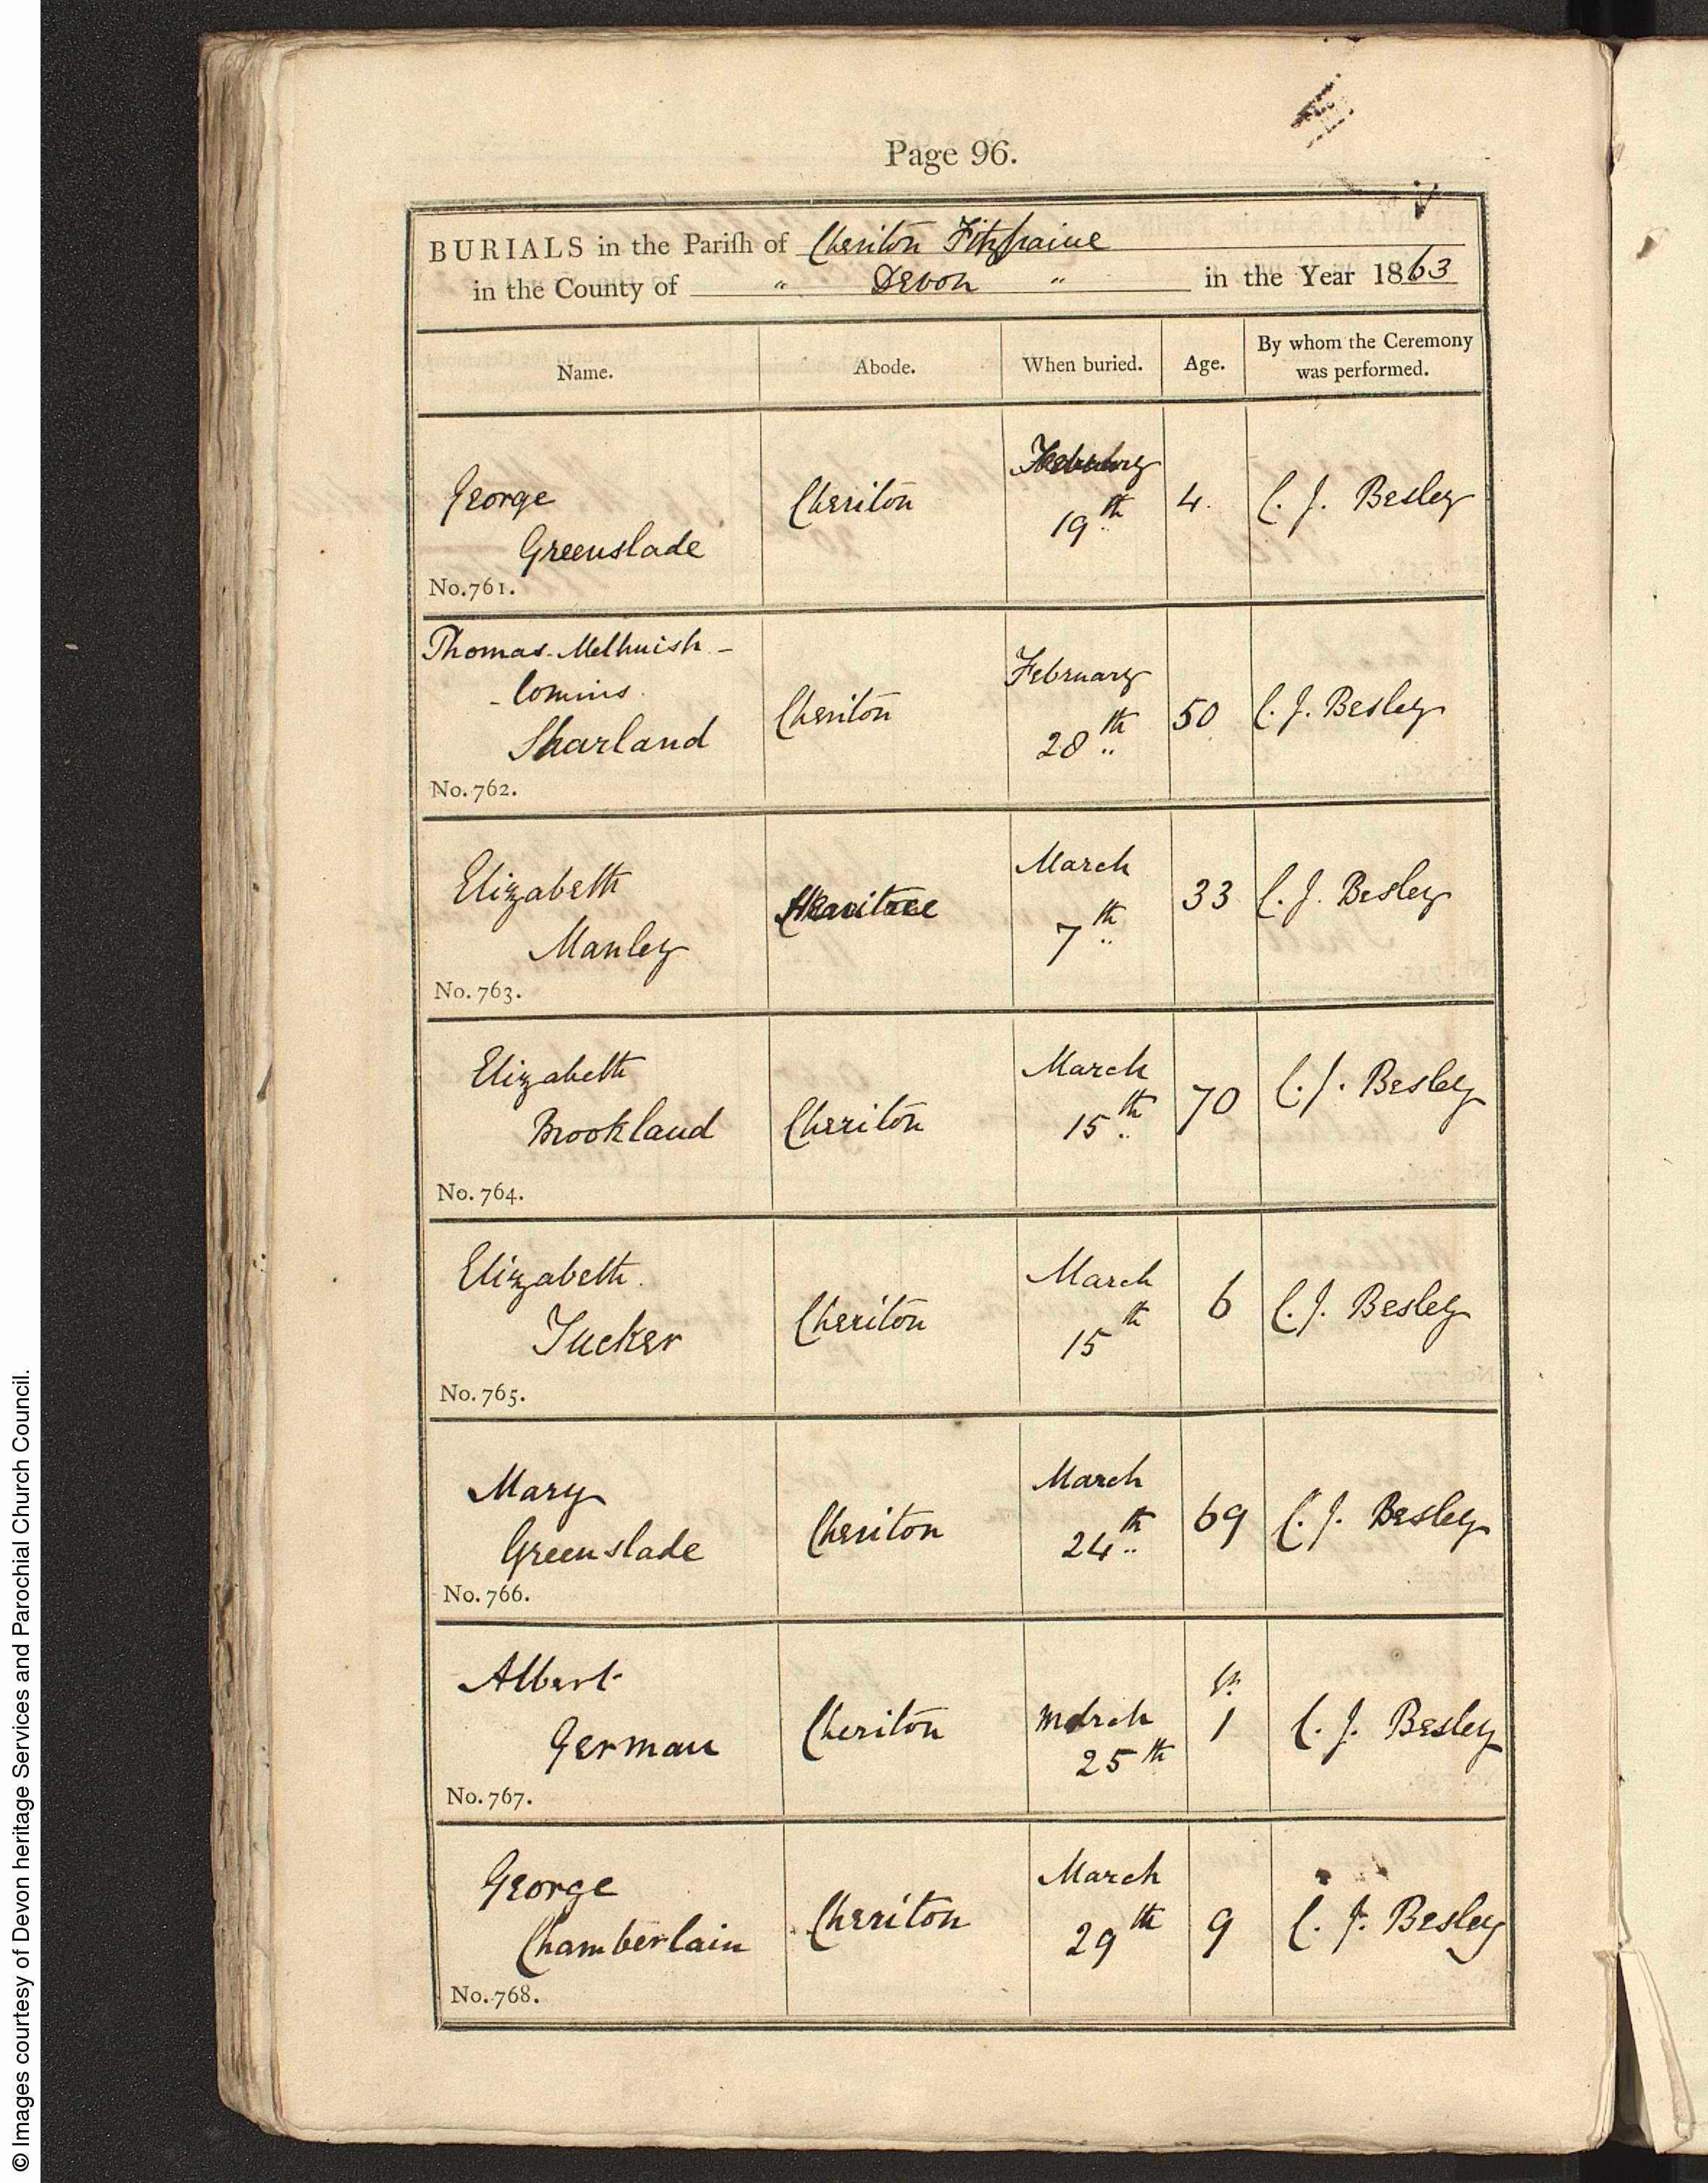 Page 96.
BURIALS in the Pariſh of Cheriton Fitzpaine
in the County of " Devon " in the Year 1863
Name. Abode. When buried. Age. By whom the Ceremony was performed.
George
Greenslade
Cheriton
February
19th
4.
C. J. Besley
No. 761.
Thomas Melhuish -
- Comins
Sharland
Cheriton
February
28th
50
C. J. Besley
No. 762.
Elizabeth
Manley
Heavitree
March
7th
33
C. J. Besley
No. 763.
Elizabeth
Brookland
Cheriton
March
15th
70
C. J. Besley
No. 764.
Elizabeth
Tucker
Cheriton
March
15th
6
C. J. Besley
No. 765.
Mary
Greenslade
Cheriton
March
24th
69
C. J. Besley
No. 766.
Albert
German
Cheriton
March
25th
1
C. J. Besley
No. 767.
George
Chamberlain
Cheriton
March
29th
9
C. J. Besley
No. 768.
© Images courtesy of Devon heritage Services and Parochial Church Council.